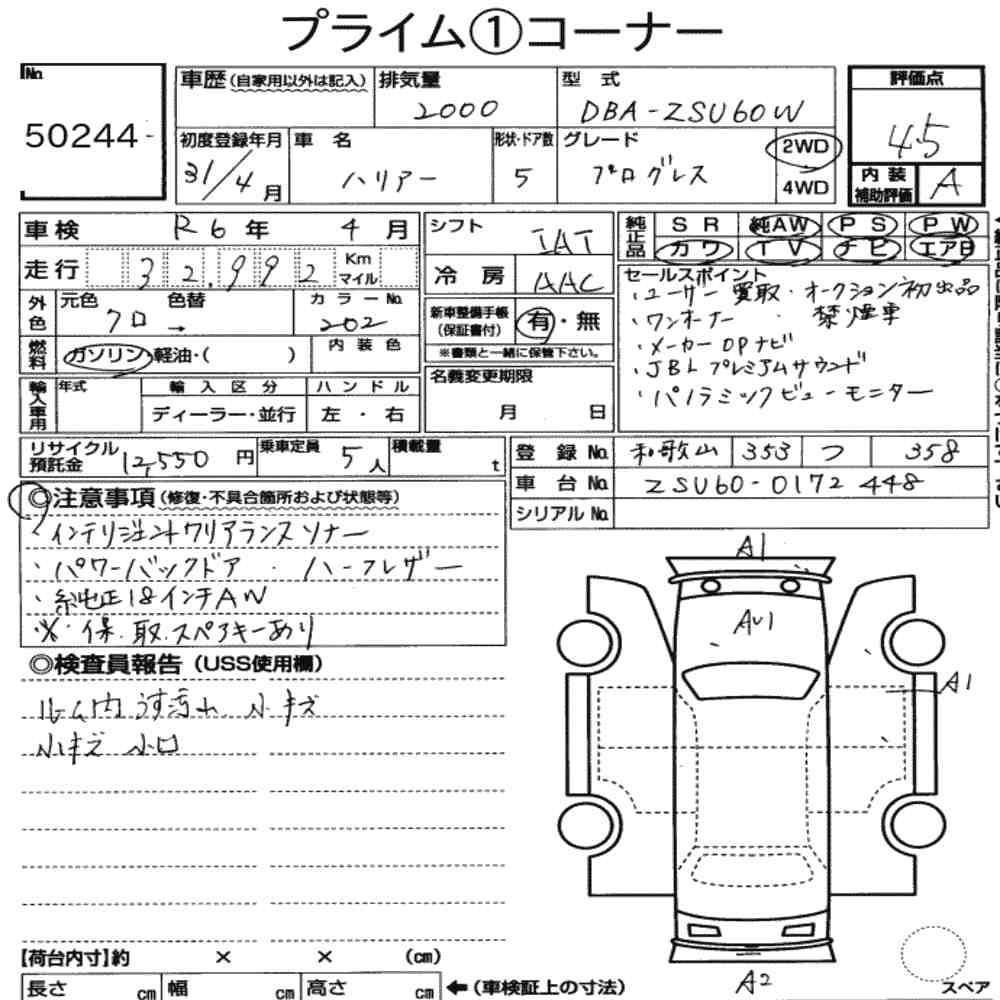 プライム①コーナー
No. 50244-
車歴（自家用以外は記入）
排気量 2000
型式 DBA-ZSU60W
評価点 4.5
初度登録年月 31/4月
車名 ハリアー
形状・ドア数 5
グレード プログレス
2WD
4WD
内装補助評価 A
車検 R6年 4月
走行 32,992 Km マイル
外色 元色 クロ → 色替
カラーNo. 202
燃料 ガソリン・軽油・( )
内装色
輸入車用 年式
輸入区分 ディーラー・並行
ハンドル 左・右
シフト IAT
冷房 AAC
新車整備手帳（保証書付） 有・無
※書類と一緒に保管下さい。
名義変更期限
月 日
純正品 SR 純AW PS PW
カワ TV ナビ エアB
セールスポイント
・ユーザー買取・オークション初出品
・ワンオーナー ・禁煙車
・メーカーOPナビ
・JBLプレミアムサウンド
・パノラミックビューモニター
リサイクル預託金 12,550円
乗車定員 5人
積載量 t
登録No. 和歌山 353 つ 358
車台No. ZSU60-0172448
シリアルNo.
◎注意事項（修復・不具合箇所および状態等）
・インテリジェントクリアランスソナー
・パワーバックドア ・ハーフレザー
・純正18インチAW
※・保・取・スペアキーあり
◎検査員報告（USS使用欄）
ルーム内うす汚れ 小キズ
小キズ 小凹
A1
AU1
A1
A2
【荷台内寸】約 × × (cm)
長さ cm 幅 cm 高さ cm ←（車検証上の寸法）
スペア